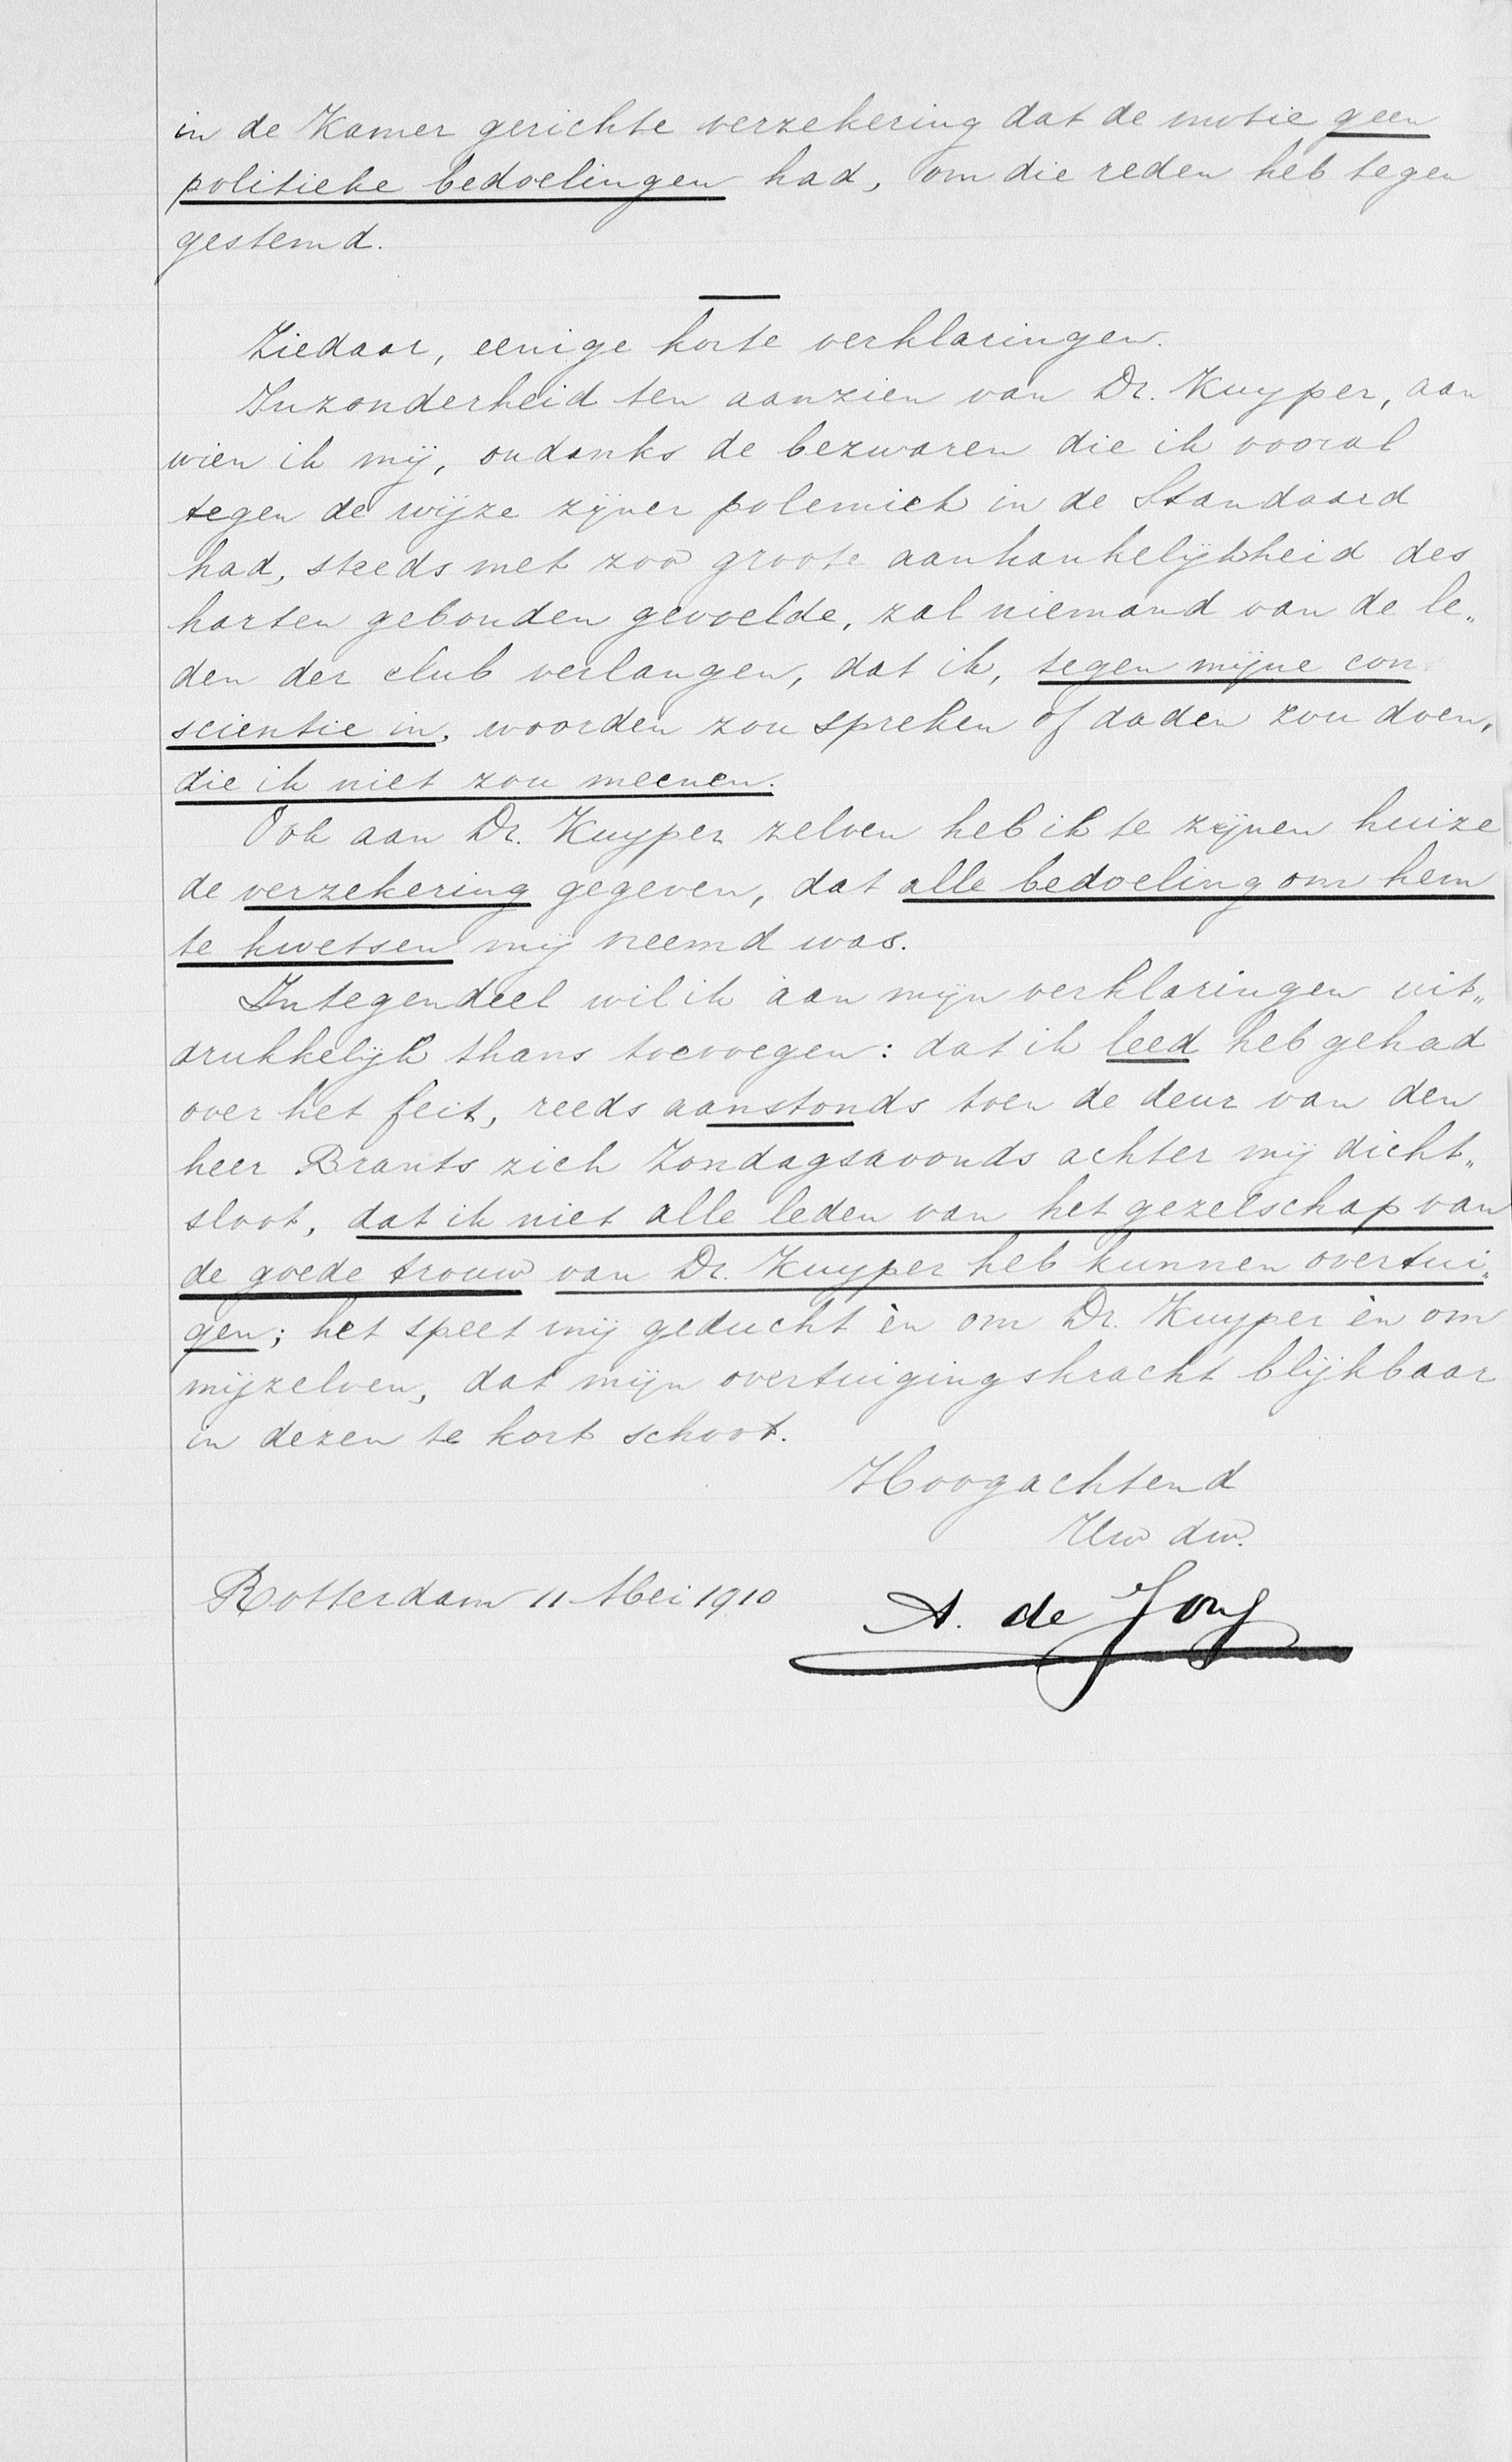 in de Kamer gerichte verzekering dat de motie geen
politieke bedoelingen had, om die reden heb tegen
gestemd.
Ziedaar, eenige korte verklaringen.
Inzonderheid ten aanzien van Dr. Kuyper, aan
wien ik mij, ondanks de bezwaren die ik vooral
tegen de wijze zijner polemiek in de Standaard
had, steeds met zoo groote aanhankelijkheid des
harten gebonden gevoelde, zal niemand van de le„
den der club verlangen, dat ik, tegen mijne con
scientie in, woorden zou spreken of daden zou doen,
die ik niet zou meenen.
Ook aan Dr. Kuyper zelven heb ik te zijnen huize
de verzekering gegeven, dat alle bedoeling om hem
te kwetsen mij vreemd was.
Integendeel wil ik aan mijn verklaringen uit„
drukkelijk thans toevoegen: dat ik leed heb gehad
over het feit, reeds aanstonds toen de deur van den
heer Brants zich Zondagsavonds achter mij dicht„
sloot, dat ik niet alle leden van het gezelschap van
de goede trouw van Dr. Kuyper heb kunnen overtui„
gen; het speet mij geducht èn om Dr. Kuyper èn om
mijzelven, dat mijn overtuigingskracht blijkbaar
in dezen te kort schoot.
Hoogachtend
Uw dw.
Rotterdam 11 Mei 1910
A. de Jong